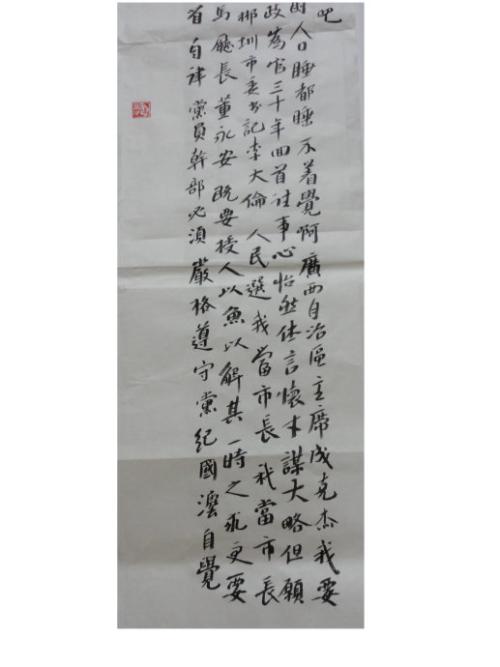 吧
困人口睡都睡不着覺啊廣西自治區主席成克杰我要
政為官三十年回首往事心怡然休言懷才謀大略但願
郴州市委書記李大倫人民選我當市長我當市長
長董永安既要授人以魚以解其一時之飢更要
省自律黨員幹部必須嚴格遵守黨紀國灋自覺